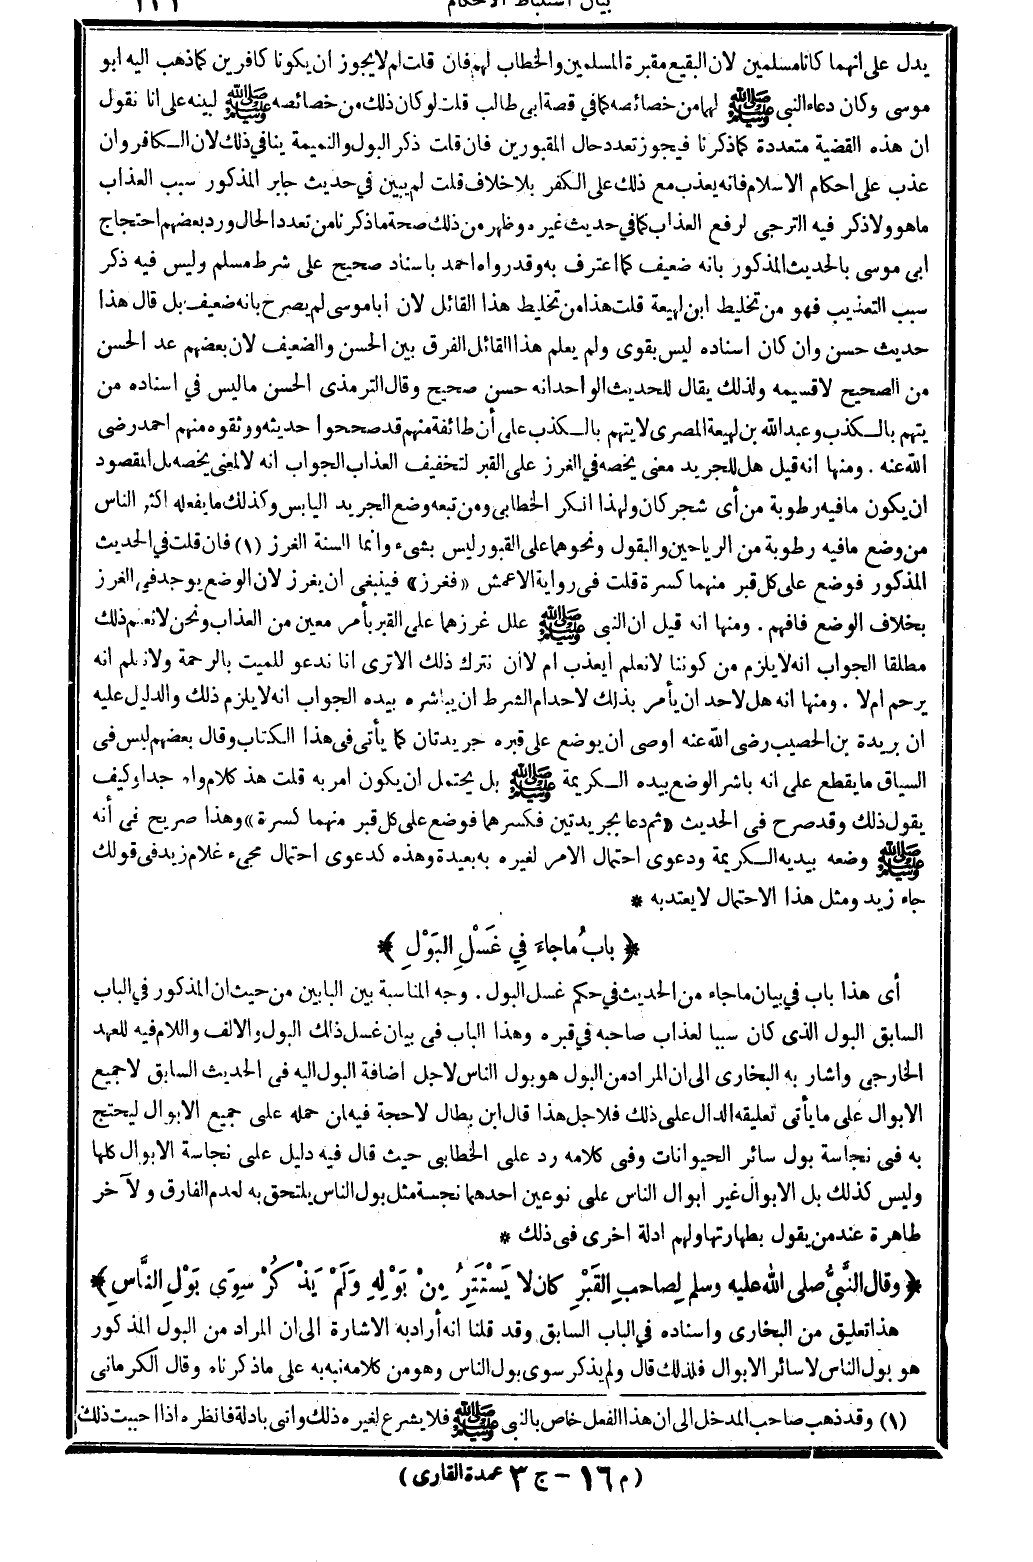 بيان استنباط الاحكام
يدل على انهما كانا مسلمين لان البقيع مقبرة المسلمين والخطاب لهم فان قلت لم لا يجوز ان يكونا كافرين كما ذهب اليه ابو
موسى وكان دعاء النبي ﷺ لهما من خصائصه كما في قصة ابى طالب قلت لو كان ذلك من خصائصه ﷺ لبينه على انا نقول
ان هذه القضية متعددة كما ذكرنا فيجوز تعدد حال المقبورين فان قلت ذكر البول والنميمة ينافي ذلك لان الكافر وان
عذب على احكام الاسلام فانه يعذب مع ذلك على الكفر بلا خلاف قلت لم يبين في حديث جابر المذكور سبب العذاب
ما هو ولا ذكر فيه الترجى لرفع العذاب كما في حديث غيره وظهر من ذلك صحة ما ذكرنا من تعدد الحال ورد بعضهم احتجاج
ابى موسى بالحديث المذكور بانه ضعيف كما اعترف به وقد رواه احمد باسناد صحيح على شرط مسلم وليس فيه ذكر
سبب التعذيب فهو من تخليط ابن لهيعة قلت هذا من تخليط هذا القائل لان ابا موسى لم يصرح بانه ضعيف بل قال هذا
حديث حسن وان كان اسناده ليس بقوى ولم يعلم هذا القائل الفرق بين الحسن والضعيف لان بعضهم عد الحسن
من الصحيح لا قسيمه ولذلك يقال للحديث الواحد انه حسن صحيح وقال الترمذى الحسن ما ليس في اسناده من
يتهم بالكذب وعبد الله بن لهيعة المصرى لا يتهم بالكذب على أن طائفة منهم قد صححوا حديثه ووثقوه منهم احمد رضى
الله عنه . ومنها انه قيل هل للجريد معنى يخصه في الغرز على القبر لتخفيف العذاب الجواب انه لا لمعنى يخصه بل المقصود
ان يكون ما فيه رطوبة من أى شجر كان ولهذا انكر الخطابى ومن تبعه وضع الجريد اليابس وكذلك ما يفعله اكثر الناس
من وضع ما فيه رطوبة من الرياحين والبقول ونحوهما على القبور ليس بشىء وانما السنة الغرز (١) فان قلت في الحديث
المذكور فوضع على كل قبر منهما كسرة قلت فى رواية الاعمش «فغرز» فينبغى ان يغرز لان الوضع يوجد في الغرز
بخلاف الوضع فافهم . ومنها انه قيل ان النبى ﷺ علل غرزهما على القبر بأمر معين من العذاب ونحن لا نعلم ذلك
مطلقا الجواب انه لا يلزم من كوننا لا نعلم ايعذب ام لا أن نترك ذلك الا ترى انا ندعو للميت بالرحمة ولا نعلم انه
يرحم ام لا . ومنها انه هل لاحد ان يأمر بذلك لاحد ام الشرط ان يباشره بيده الجواب انه لا يلزم ذلك والدليل عليه
ان بريدة بن الحصيب رضى الله عنه اوصى ان يوضع على قبره جريدتان كما يأتى فى هذا الكتاب وقال بعضهم ليس فى
السياق ما يقطع على انه باشر الوضع بيده الكريمة ﷺ بل يحتمل ان يكون امر به قلت هذ كلام واه جدا وكيف
يقول ذلك وقد صرح فى الحديث «ثم دعا بجريدتين فكسرهما فوضع على كل قبر منهما كسرة» وهذا صريح فى أنه
ﷺ وضعه بيديه الكريمة ودعوى احتمال الامر لغيره به بعيدة وهذه كدعوى احتمال مجىء غلام زيد فى قولك
جاء زيد ومثل هذا الاحتمال لا يعتد به *
﴿ بابُ ما جاءَ فِي غَسْلِ البَوْلِ ﴾
أى هذا باب في بيان ما جاء من الحديث في حكم غسل البول . وجه المناسبة بين البابين من حيث ان المذكور في الباب
السابق البول الذى كان سببا لعذاب صاحبه في قبره وهذا الباب فى بيان غسل ذلك البول والالف واللام فيه للعهد
الخارجى واشار به البخارى الى ان المراد من البول هو بول الناس لاجل اضافة البول اليه فى الحديث السابق لا جميع
الابوال على ما يأتى تعليقه الدال على ذلك فلاجل هذا قال ابن بطال لا حجة فيه لمن حمله على جميع الابوال ليحتج
به فى نجاسة بول سائر الحيوانات وفى كلامه رد على الخطابى حيث قال فيه دليل على نجاسة الابوال كلها
وليس كذلك بل الابوال غير ابوال الناس على نوعين احدهما نجسة مثل بول الناس يلتحق به لعدم الفارق والآخر
طاهرة عند من يقول بطهارتها ولهم ادلة اخرى فى ذلك *
﴿ وقال النَّبىُّ صلى الله عليه وسلم لِصاحبِ القَبْرِ كان لا يَسْتَتِرُ مِنْ بَوْلِهِ وَلَمْ يَذْكُرْ سِوَى بَوْلِ النَّاسِ ﴾
هذا تعليق من البخارى واسناده في الباب السابق وقد قلنا انه أراد به الاشارة الى ان المراد من البول المذكور
هو بول الناس لا سائر الابوال فلذلك قال ولم يذكر سوى بول الناس وهو من كلامه نبه به على ما ذكرناه وقال الكرمانى
(١) وقد ذهب صاحب المدخل الى ان هذا الفعل خاص بالنبي ﷺ فلا يشرع لغيره ذلك واتى بادلة فانظره اذا احببت ذلك
(م ١٦ - ج ٣ عمدة القارى)